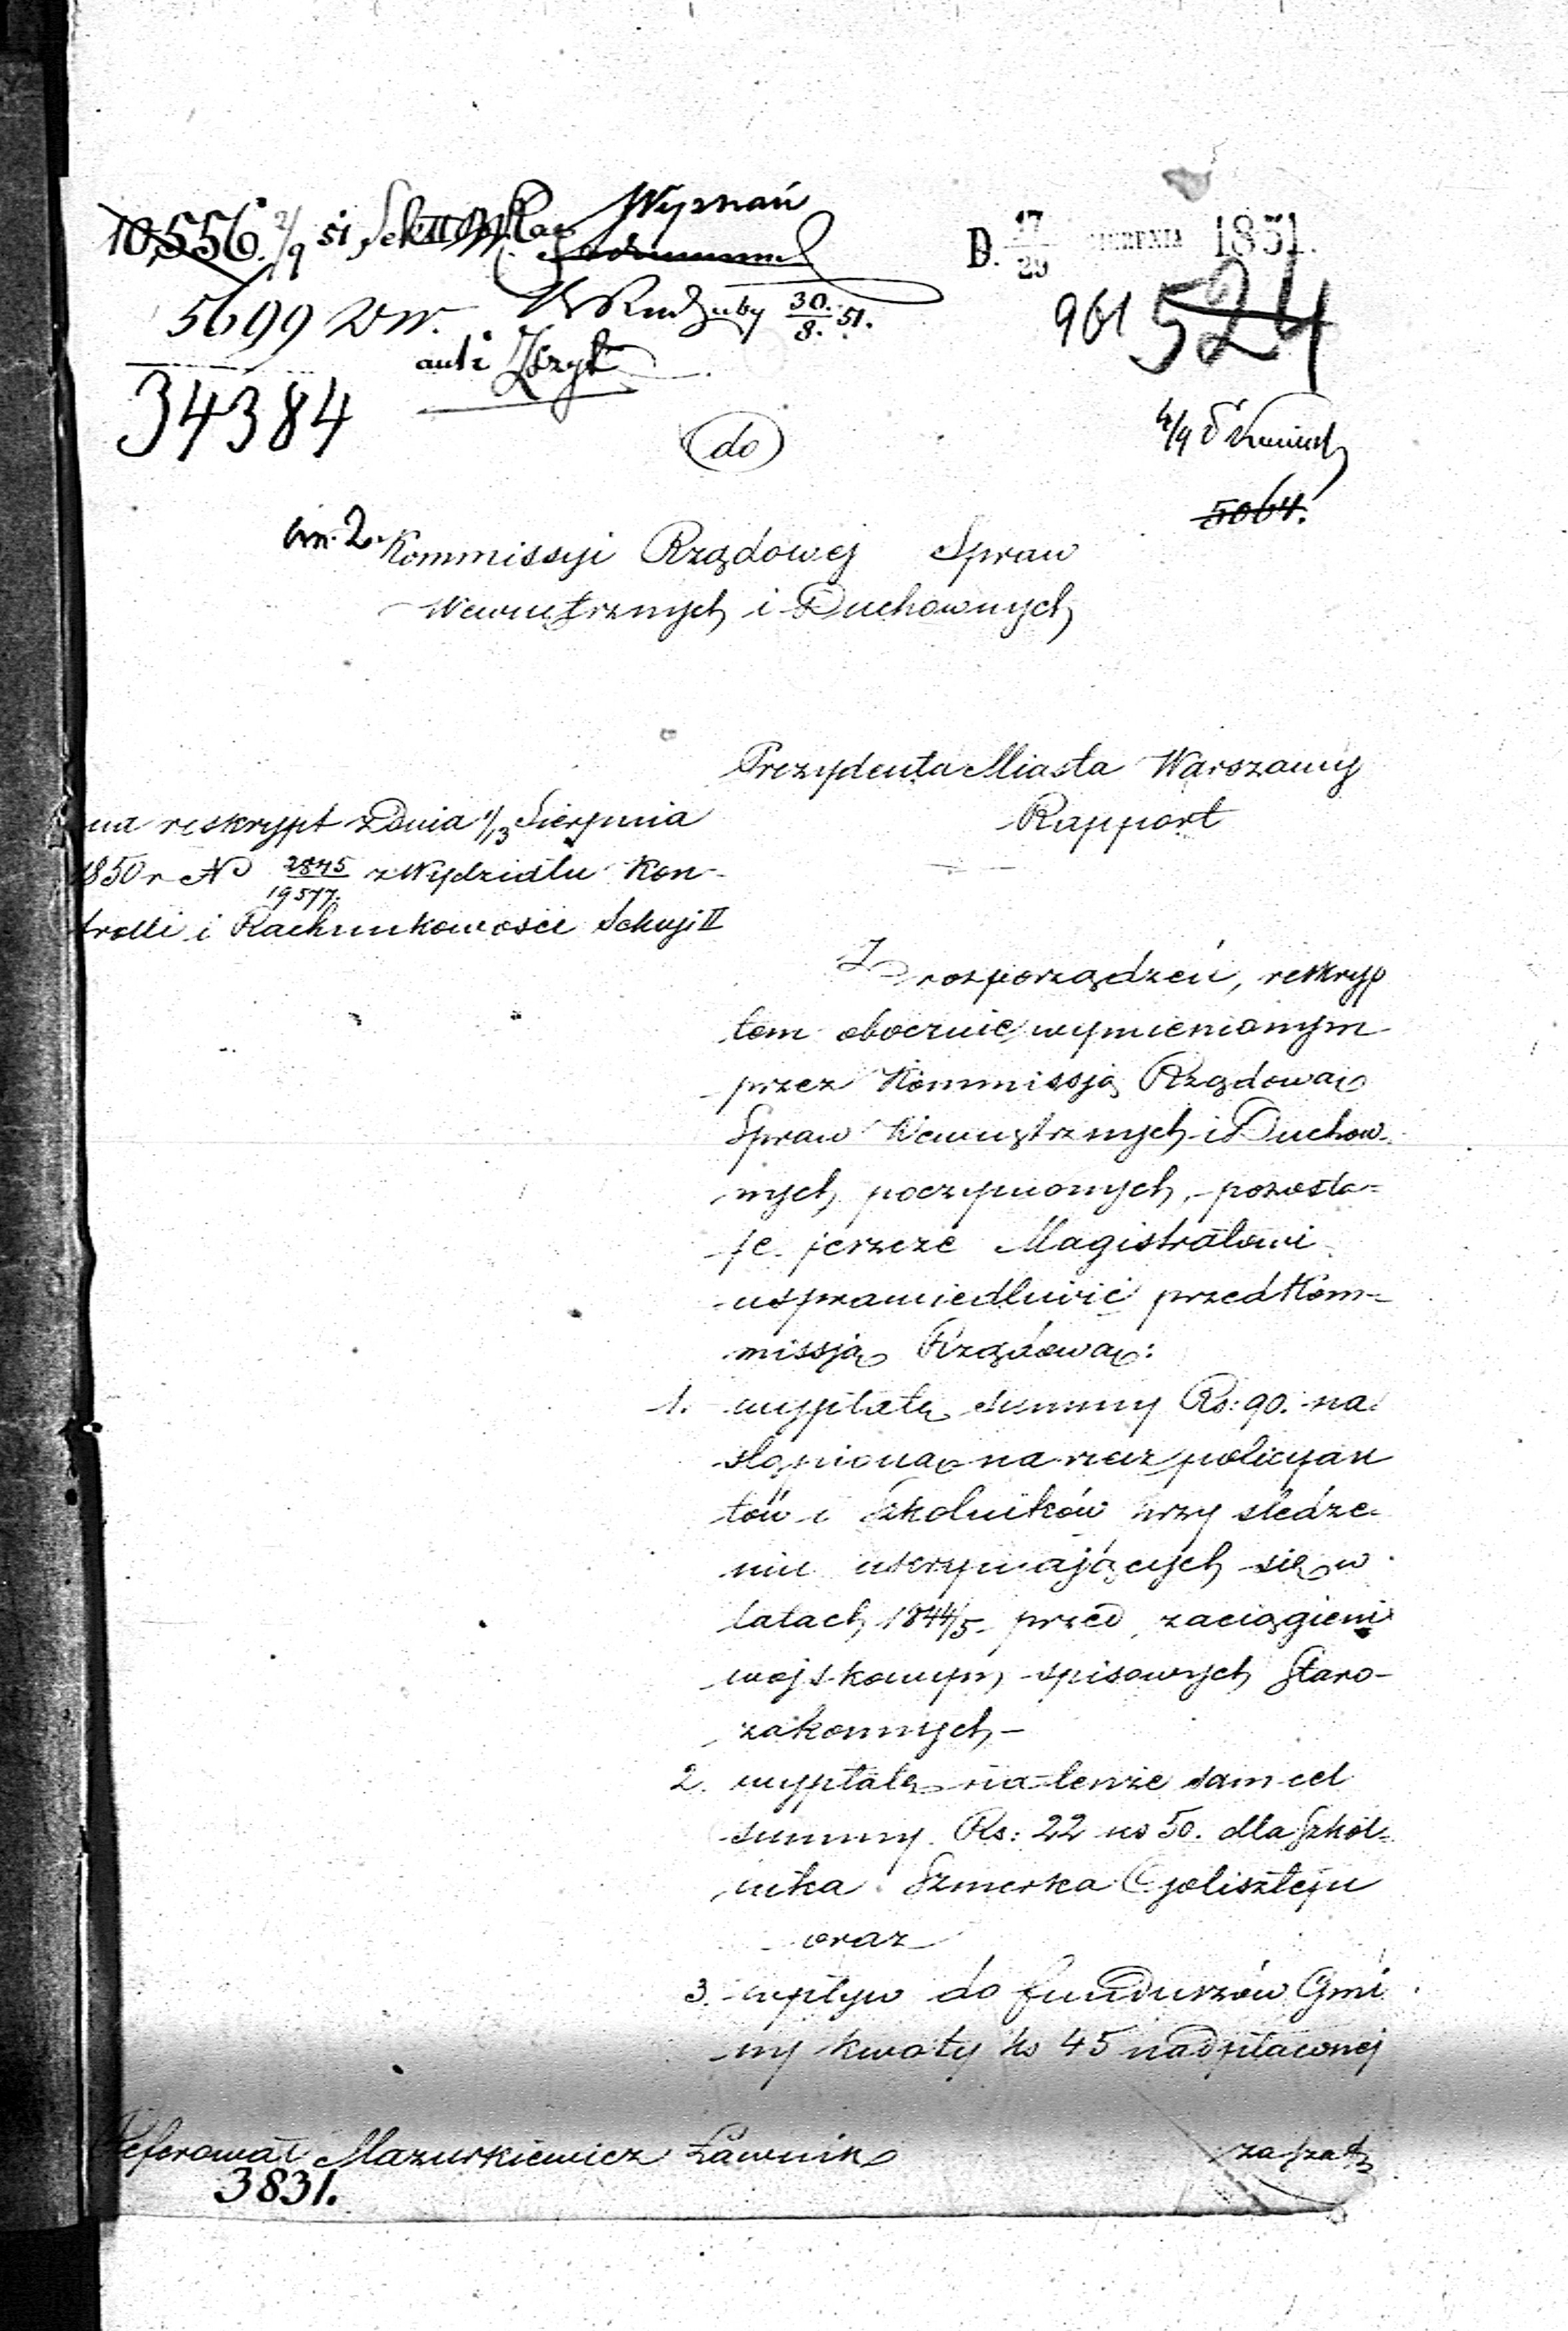 10,556. 2/9 51
Wyznań
D. 17/29 SIERPNIA 1851.
5699
30./8. 51.
961 524
34384
do
5064.
Kommissyi Rządowej Spraw
Wewnętrznych i Duchownych
Prezydenta Miasta Warszawy
Rapport
na reskrypt z Dnia 1/13 Sierpnia
1850 r No 2845/19577. z Wydziału Kon-
trolli i Rachunkowości Sekcyi II
Z rozporządzeń, reskryp
tem obocznie wymienionym
przez Kommissją Rządową
Spraw Wewnętrznych i Duchow-
nych poczynionych, pozosta=
je jeszcze Magistratowi
usprawiedliwić przed Kom=
missją Rządową:
1. wypłatę summy Rs: 90. na
stąpioną na rzecz policyan
tów i Szkolników przy śledze-
niu ukrywających się w
latach 1844/5 przed zaciągiem
wojskowym spisowych Staro-
zakonnych -
2. wypłatę na tenże sam cel
summy Rs: 22 ko 50. dla Szkol=
nika Szmerka
oraz
3. wpływ do funduszów Gmi
ny kwoty ko 45 nadpłaconej
Referował Mazurkiewicz Ławnik
3831.